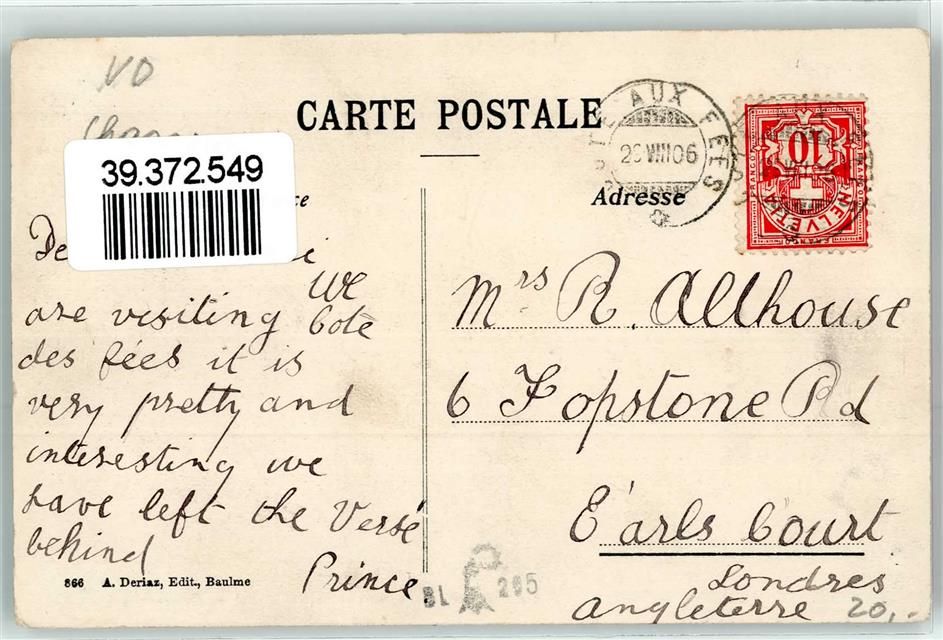 VO
CARTE POSTALE
AUX FÉES
29 VIII 06
10
FRANCO
HELVETIA
39.372.549
Adresse
We
are visiting Cote
des fées it is
very pretty and
interesting we
have left the Versé
behind
Prince
Mrs R. Allhouse
6 Fopstone Rd
Earls Court
Londres
Angleterre
20,-
866 A. Deriaz, Edit., Baulme